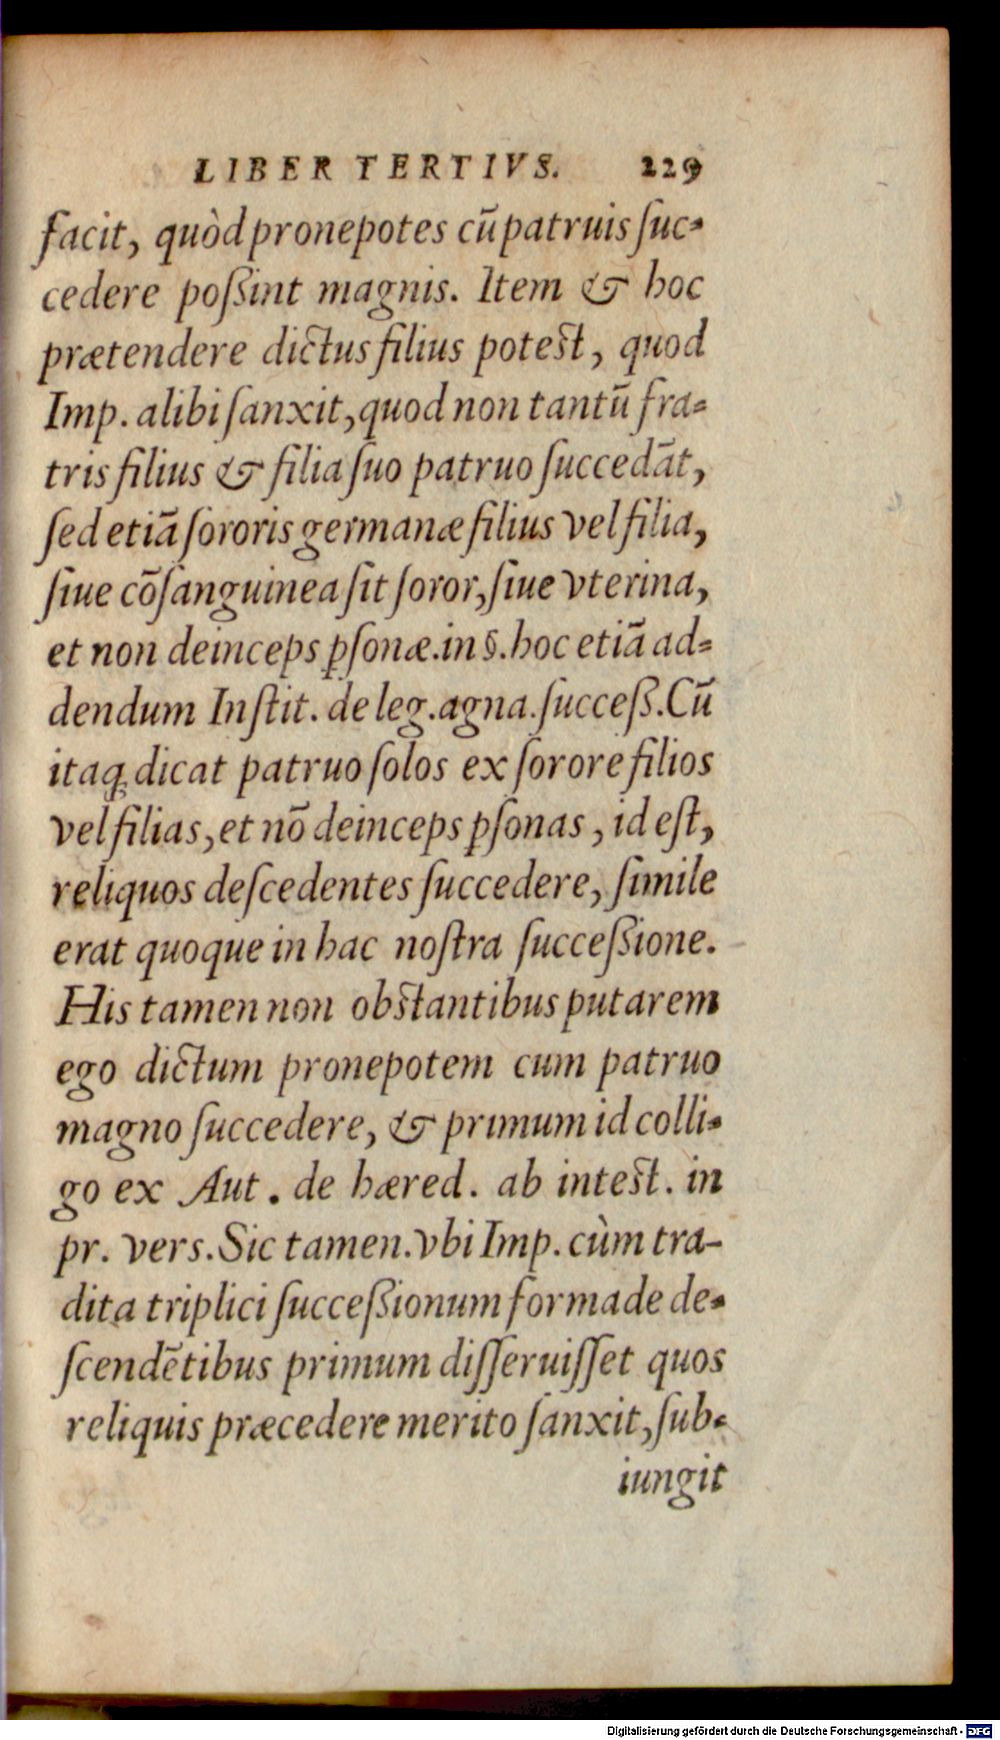 LIBER TERTIVS. 229
facit, quòd pronepotes cũ patruis ſuc-
cedere poßint magnis. Item & hoc
prætendere dictus filius poteſt, quod
Imp. alibi ſanxit, quod non tantũ fra-
tris filius & filia ſuo patruo ſuccedãt,
ſed etiã ſororis germanæ filius vel filia,
ſiue cõſanguinea ſit ſoror, ſiue vterina,
et non deinceps ꝑſonæ. in §. hoc etiã ad-
dendum Inſtit. de leg. agna. ſucceß. Cũ
itaq; dicat patruo ſolos ex ſorore filios
vel filias, et nõ deinceps ꝑſonas, id eſt,
reliquos deſcedentes ſuccedere, ſimile
erat quoque in hac noſtra ſucceßione.
His tamen non obſtantibus putarem
ego dictum pronepotem cum patruo
magno ſuccedere, & primum id colli-
go ex Aut. de hæred. ab inteſt. in
pr. vers. Sic tamen. vbi Imp. cùm tra-
dita triplici ſucceßionum forma de de-
ſcendẽtibus primum diſſeruiſſet quos
reliquis præcedere merito ſanxit, ſub-
iungit
Digitalisierung gefördert durch die Deutsche Forschungsgemeinschaft - DFG